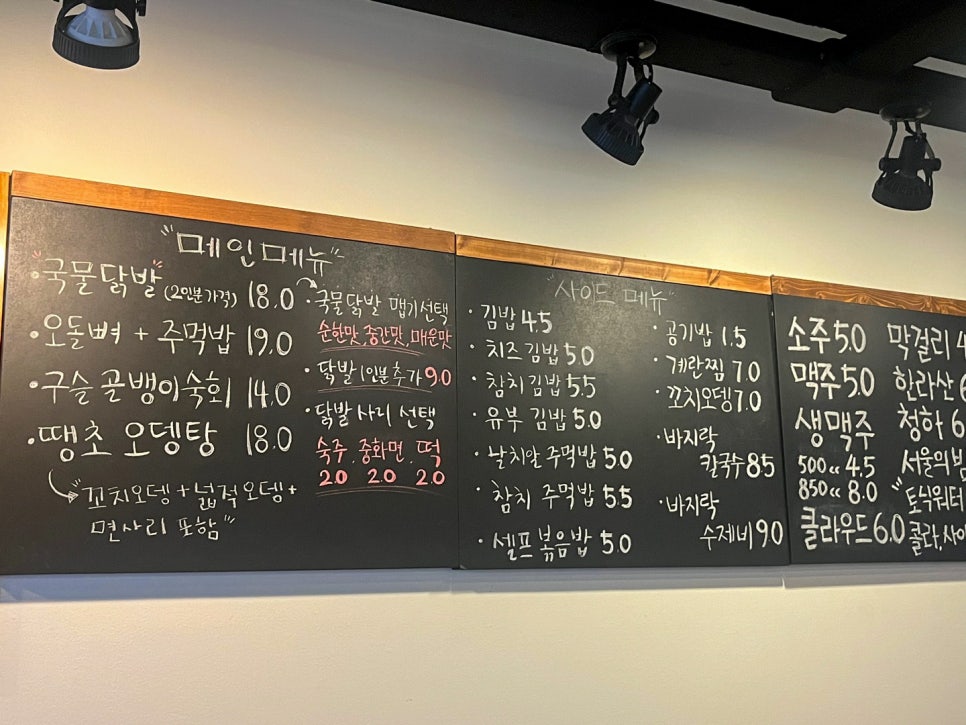 "메인메뉴"
"국물닭발" (2인분가격) 18.0
·오돌뼈 + 주먹밥 19.0
·구슬골뱅이숙회 14.0
·땡초 오뎅탕 18.0
"꼬치오뎅+넓적오뎅+
면사리 포함"
·국물닭발 맵기선택
순한맛,중간맛,매운맛
·닭발1인분추가 9.0
·닭발 사리 선택
숙주, 중화면, 떡
2.0 2.0 2.0
"사이드 메뉴"
·김밥 4.5
·치즈김밥 5.0
·참치김밥 5.5
·유부 김밥 5.0
·날치알 주먹밥 5.0
·참치 주먹밥 5.5
·셀프 볶음밥 5.0
·공기밥 1.5
·계란찜 7.0
·꼬치오뎅 7.0
·바지락
칼국수 8.5
·바지락
수제비 9.0
소주 5.0
맥주 5.0
생맥주
500cc 4.5
850cc 8.0
클라우드 6.0
막걸리 4
한라산 6
청하 6
서울의밤
"토닉워터
콜라,사이